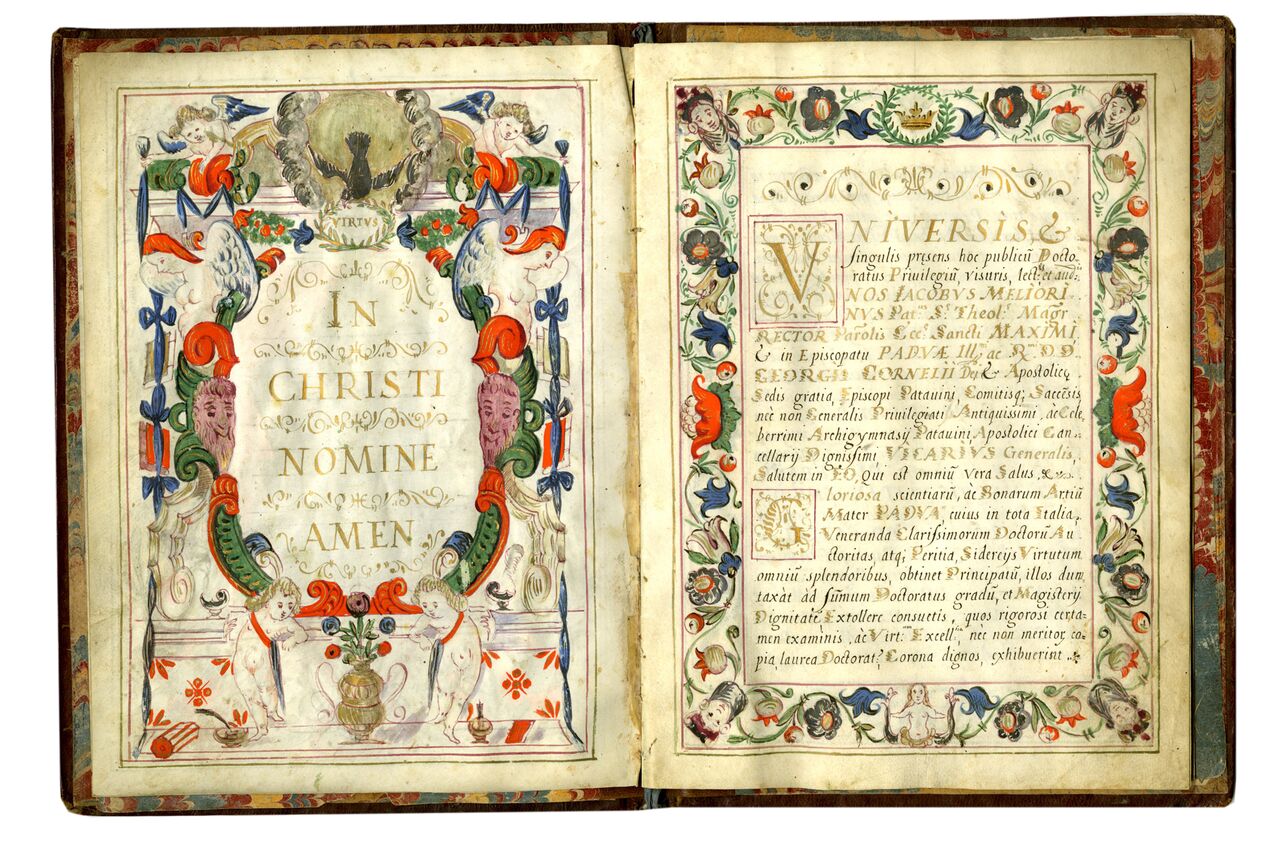 VIRTVS
IN
CHRISTI
NOMINE
AMEN
VNIVERSIS, &
singulis presens hoc publicũ Docto-
ratus Privilegiũ, visuris, lect.ͥˢ et aud.ͥˢ
NOS IACOBVS MELIORI-
NVS Pat.ⁿˢ S.ᵉ Theol.ᵉ Mag.ʳ
RECTOR Parolis Ecc.ᵉ Sancti MAXIMI,
& in Episcopatu PADVÆ Ill.ᵐⁱ ac R.ᵐⁱ D.D.
GEORGII CORNELII Dei & Apostolicę
Sedis gratia, Episcopi Patavini, Comitisq; Saccẽsis
nèc non Generalis Privilegiati Antiquissimi, ac Cele-
berrimi Archigymnasij Patavini Apostolici Can-
cellarij Dignissimi VICARIVS Generalis,
Salutem in EO, Qui est omniũ vera Salus, &.
Gloriosa scientiarũ, ac Bonarum Artiũ
Mater PADVA, cuius in tota Italia,
Veneranda Clarissimorum Doctorũ Au-
ctoritas, atq; Peritia, Sidereijs Virtutum
omniũ splendoribus, obtinet Principatũ, illos dun-
taxàt ad sũmum Doctoratus gradũ, et Magisterij
Dignitatẽ Extollere consuetis, quos rigorosi certa-
men examinis, ac Virt.ᵐ Excell.ᵐ, nèc non meritor, co-
pia, laurea Doctorat.ˢ Corona dignos, exhibuerint.